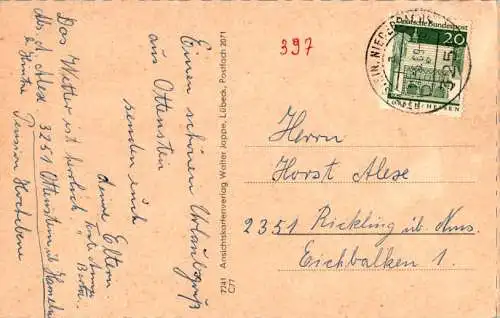 Einen schönen Urlaubsgruß
aus Ottenstein
senden euch
deine Eltern
Das Wetter ist herrlich
Abs. A. Alex
3251 Ottenstein ü. Hameln
Pension Hochebene
Ansichtskartenverlag Walter Jappe, Lübeck, Postfach 2071
7741 C/71
397
Deutsche Bundespost
20
LORSCH/HESSEN
325
Herrn
Horst Alex
2351 Rickling üb. Nms.
Eichbalken 1.